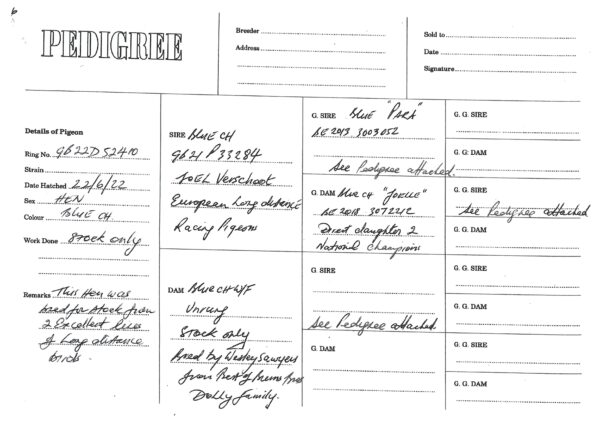 PEDIGREE
Breeder
Address
Sold to
Date
Signature
Details of Pigeon
Ring No. GB22D52410
Strain
Date Hatched 22/6/22
Sex HEN
Colour BLUE CH.
Work Done Stock only
Remarks This Hen was
bred for stock from
2 Excellent lines
of Long distance
birds.
SIRE Blue CH
GB21 P33284
JOEL Verschoot
European Long distance
Racing Pigeons
DAM Blue CH W/F
Unrung
Stock only
Bred by Wesley Sawyers
from Best of
Dolly family.
G. SIRE Blue "PARA"
BE 2013 3003052
See Pedigree attached.
G. DAM Blue CH "JOELLE"
BE 2018
Direct daughter 2
National Champions
G. SIRE
See Pedigree attached
G. DAM
G. G. SIRE
G. G. DAM
G. G. SIRE
See Pedigree attached
G. G. DAM
G. G. SIRE
G. G. DAM
G. G. SIRE
G. G. DAM